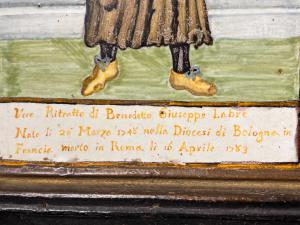 Vero Ritratto di Benedetto Giuseppe Labre
Nato li 26 Marzo 1748 nella Diocesi di Bologna in
Francia morto in Roma li 16 Aprile 1783